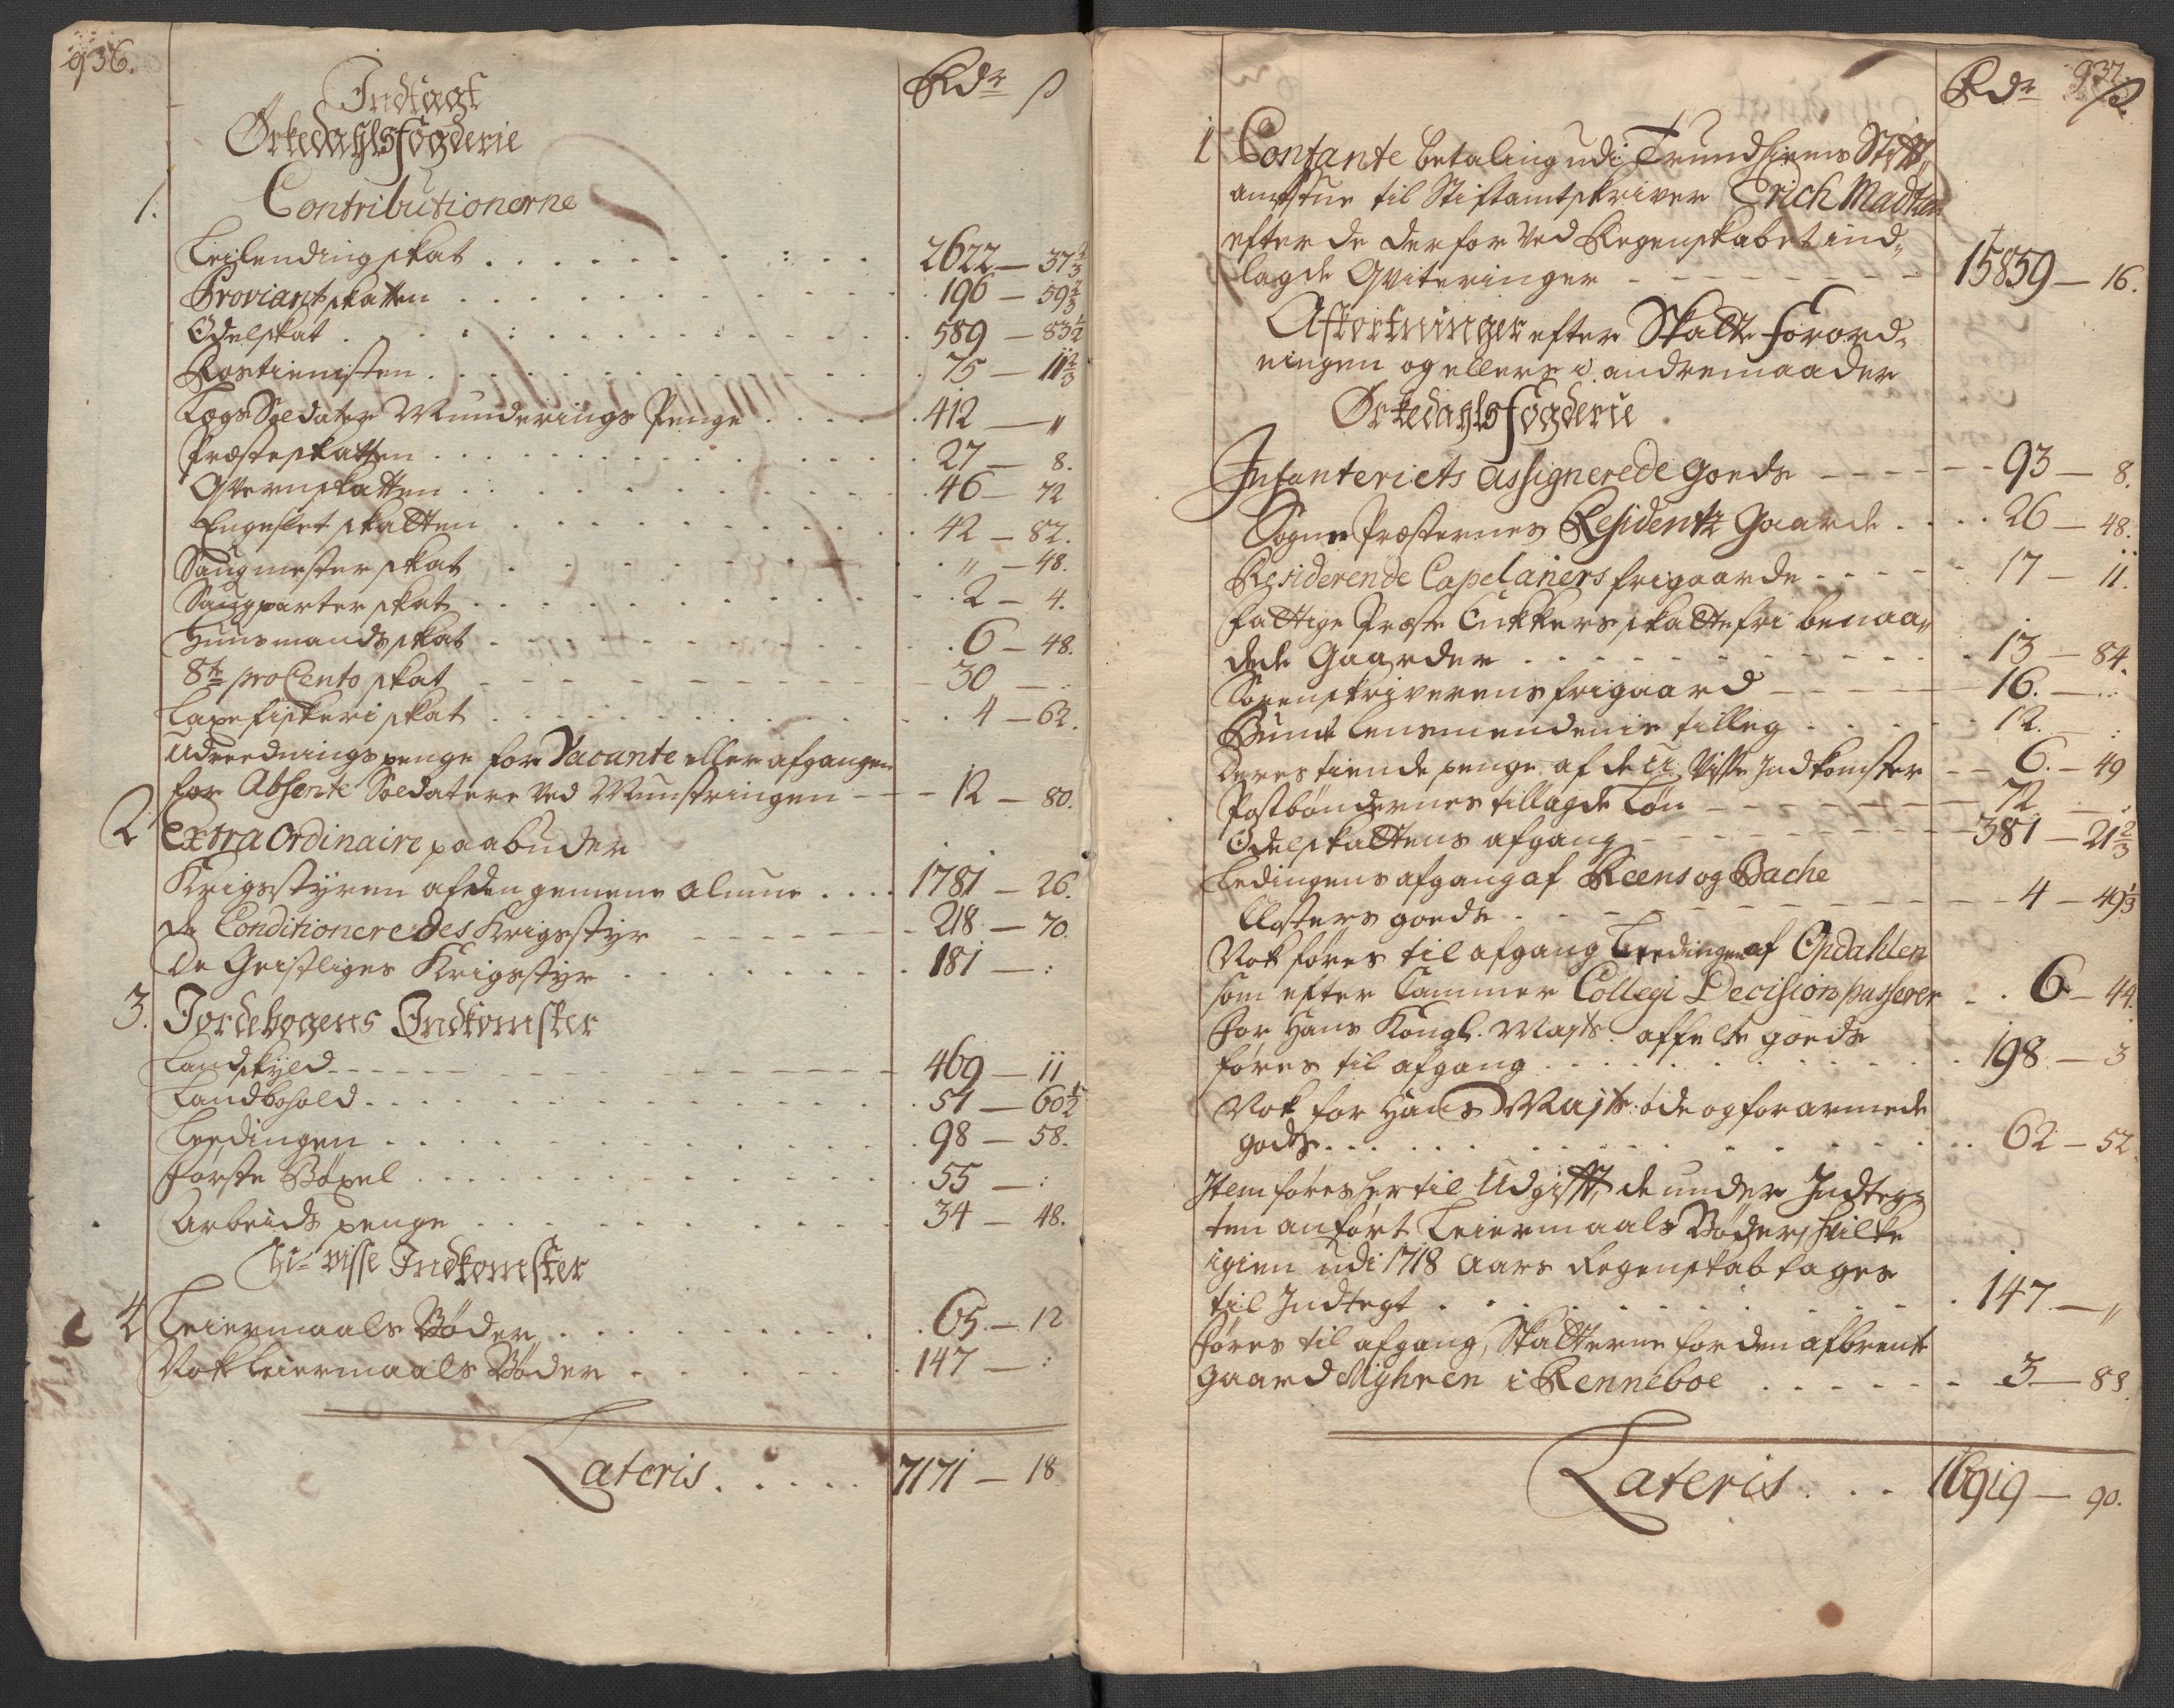 936.
Indtagt
Rdr ß
Ørkedahls fogderie
1. Contributionerne
Leilendingskat 2622 — 37 1/3
Proviantskatten 196 — 59 2/3
Odelskat 589 — 83 1/2
Rostienisten 75 — 11 2/3
Legs Soldater Munderings Penge 412 — "
Præsteskatten 27 — 8.
Qvernskatten 46 — 72
Engeslet skatten 42 — 82.
Saugmester skat " — 48.
Saugparter skat 2 — 4.
Huusmandsskat 6 — 48.
8te pro Cento skat 30 — :
Laxefiskeri skat 4 — 62.
Udreednings penge for Vacante eller afgangen
for Absente Soldatere ved Munstringen 12 — 80.
2 Extra Ordinaire paabuder
Krigsstyren af den gemene almue 1781 — 26.
de Conditioneredes Krigsstyr 218 — 70.
De Geistliges Krigsstyr 181 — :
3. Jordebogens Indkomster
Landskyld 469 — 11
Landbohold 51 — 60 1/2
Leedingen 98 — 58.
Første Bøxel 55 — :
Arbeids penge 34 — 48.
U-visse Indkomster
4 Leiermaals Bøder 65 — 12
Nok leiermaals Bøder 147 — :
Lateris 7171 — 18
937.
Rdr ß.
1 Contante betaling udi Trundhiems Stift
amtstue til Stiftamtskriver Erich Madsen
efter de derfor ved Regenskabet ind„
lagde Qviteringer 15859 — 16.
Afkortninger efter Skatte forord„
ningen og ellers i andre maader
Ørkedahls fogderie
Infanteriets assignerede goeds 93 — 8.
Sogne Præsternes Residentz gaarde 26 — 48.
Residerende Capelaners frigaarde 17 — 11.
fattige Præste Enkkers skattefri benaa„
dede Gaarder 13 — 84.
Sorenskriverens frigaard 16. — :
Bunde lensmendenis tilleg 12. — :
Deres tiende penge af de u Visse Indkomster 6. — 49
Postbøndernes tillagde Løn 72 — .
Odelskattens afgang 381 — 21 2/3
Ledingens afgang af Reens og Bache
Closters goeds 4 — 49 1/3
Nok føres til afgang Leedingen af Opdahlen
som efter Cammer Collegi Decision passerer 6 — 44.
For Hans Kongl. Majts. affelde goeds
føres til afgang 198 — 3
Nok for Hans Majts: øde og forarmede
gods 62 — 52.
Item føres her til Udgift, de under Indteg„
ten anført Leiermaals Bøder, hvilke
igien udi 1718 Aars Regenskab tages
til Indtegt 147 — "
Føres til afgang, Skatterne for den afbrente
gaard Myhren i Renneboe 3 — 88.
Lateris 16919 — 90.